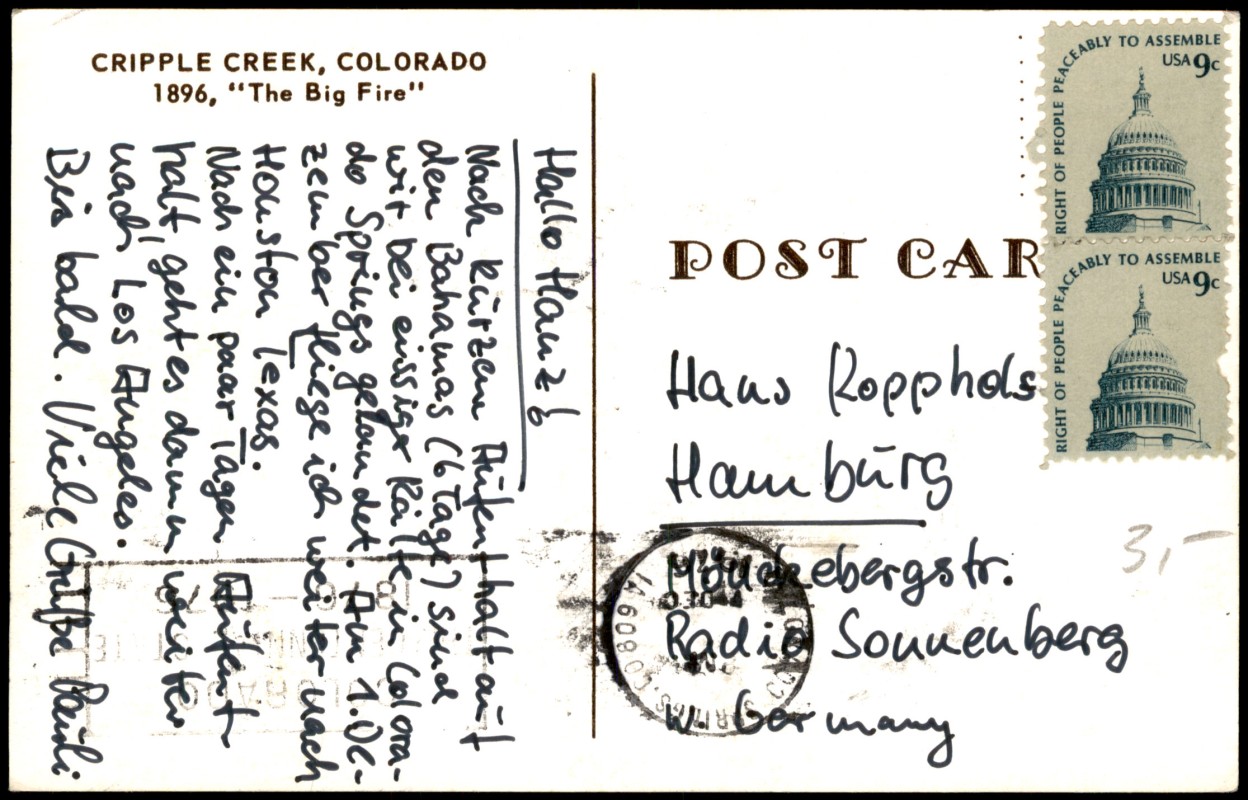 CRIPPLE CREEK, COLORADO
1896, "The Big Fire"
Hallo Hans
Nach kurzem Aufenthalt auf
den Bahamas (6 Tage) sind
wir bei eissiger Kälte in Colora-
do Springs gelandet. Am 1. De-
zember fliege ich weiter nach
Houston Texas.
Nach ein paar Tagen Aufent-
halt, geht es dann weiter
nach Los Angeles.
Bis bald. Viele Grüße Pauli
RIGHT OF PEOPLE PEACEABLY TO ASSEMBLE
USA 9c
RIGHT OF PEOPLE PEACEABLY TO ASSEMBLE
USA 9c
POST CAR
Hans
Hamburg
Mönckebergstr.
Radio Sonnenberg
W. Germany
3,-